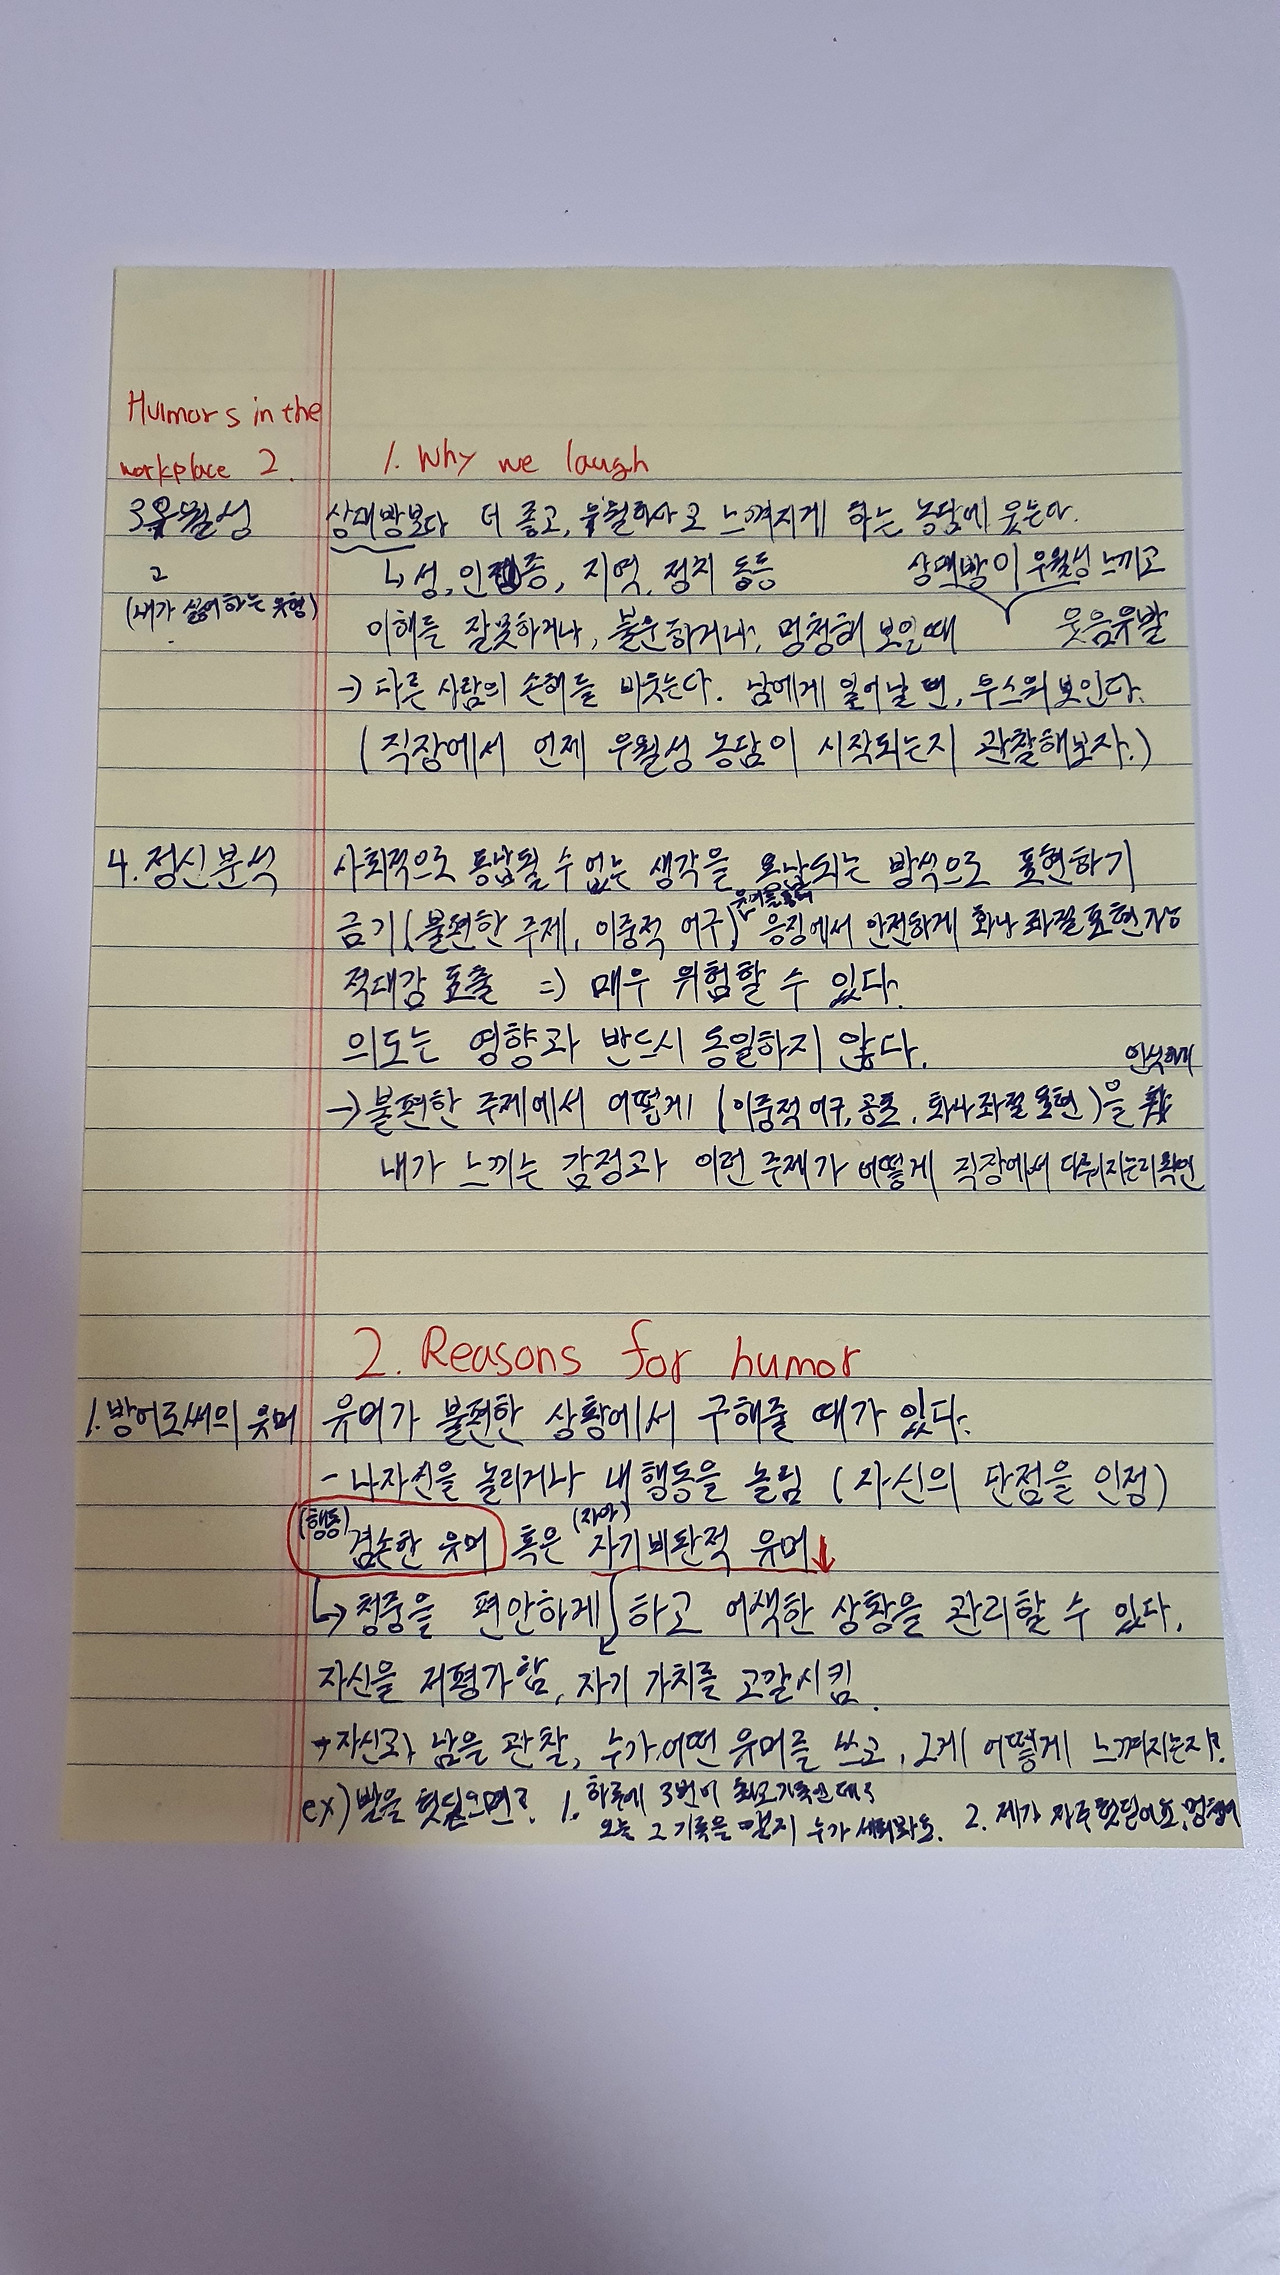 Humors in the
workplace 2.
1. Why we laugh
3. 우월성
상대방보다 더 좋고, 우월하다고 느껴지게 하는 농담에 웃는다.
↳ 성, 인종, 지역, 정치 등등
상대방이 우월성 느끼고
(내가 싫어하는 유형)
이해를 잘못하거나, 불운하거나, 멍청해 보일때
웃음유발
→ 다른 사람의 손해를 비웃는다. 남에게 일어날 땐, 우스워 보인다.
(직장에서 언제 우월성 농담이 시작되는지 관찰해보자.)
4. 정신분석
사회적으로 용납될 수 없는 생각을 용납되는 방식으로 표현하기
유머를 통해
금기(불편한 주제, 이중적 어구) 응징에서 안전하게 화나 좌절 표현 가능
적대감 표출 ⇒ 매우 위험할 수 있다.
의도는 영향과 반드시 동일하지 않다.
인식하며
→ 불편한 주제에서 어떻게 (이중적 어구, 공포, 화나 좌절 표현)을
내가 느끼는 감정과 이런 주제가 어떻게 직장에서 다뤄지는지 확인
2. Reasons for humor
1. 방어로써의 유머
유머가 불편한 상황에서 구해줄 때가 있다.
- 나 자신을 놀리거나 내 행동을 놀림 (자신의 단점을 인정)
(행동) (자아)
겸손한 유머 혹은 자기비판적 유머↓
↳ 청중을 편안하게 하고 어색한 상황을 관리할 수 있다.
자신을 저평가함, 자기 가치를 고갈시킴.
→ 자신과 남을 관찰, 누가 어떤 유머를 쓰고, 그게 어떻게 느껴지는지?
ex) 발을 헛딛으면? 1. 하루에 3번이 최고기록인데,
오늘 그 기록을 깰지 누가 세줘봐요. 2. 제가 자주 헛딛어요, 멍청해